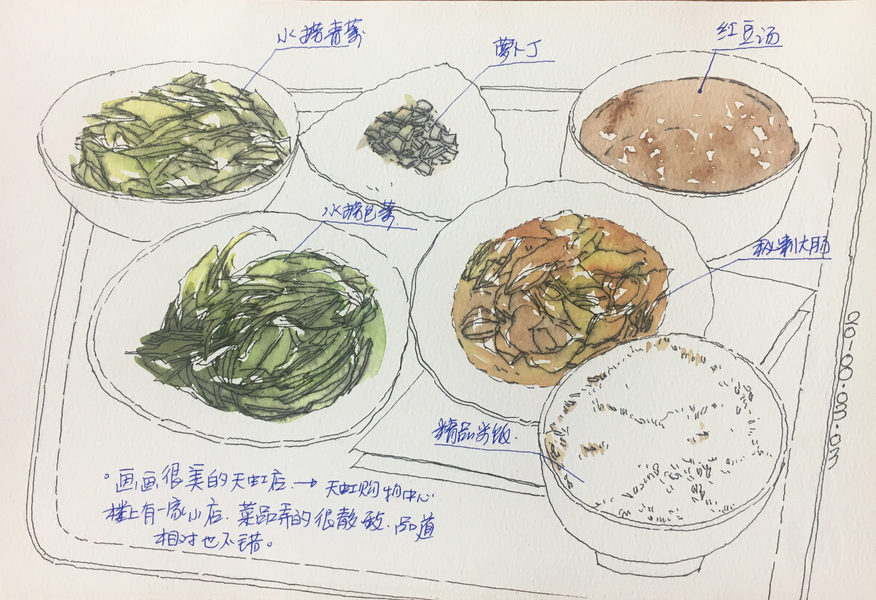 水捞青菜
萝卜丁
红豆汤
水捞包菜
秘制大肠
精品米饭.
画画很美的天虹店.→天虹购物中心
楼上有一家小店.菜品弄的很散致.品道
相对也不错。